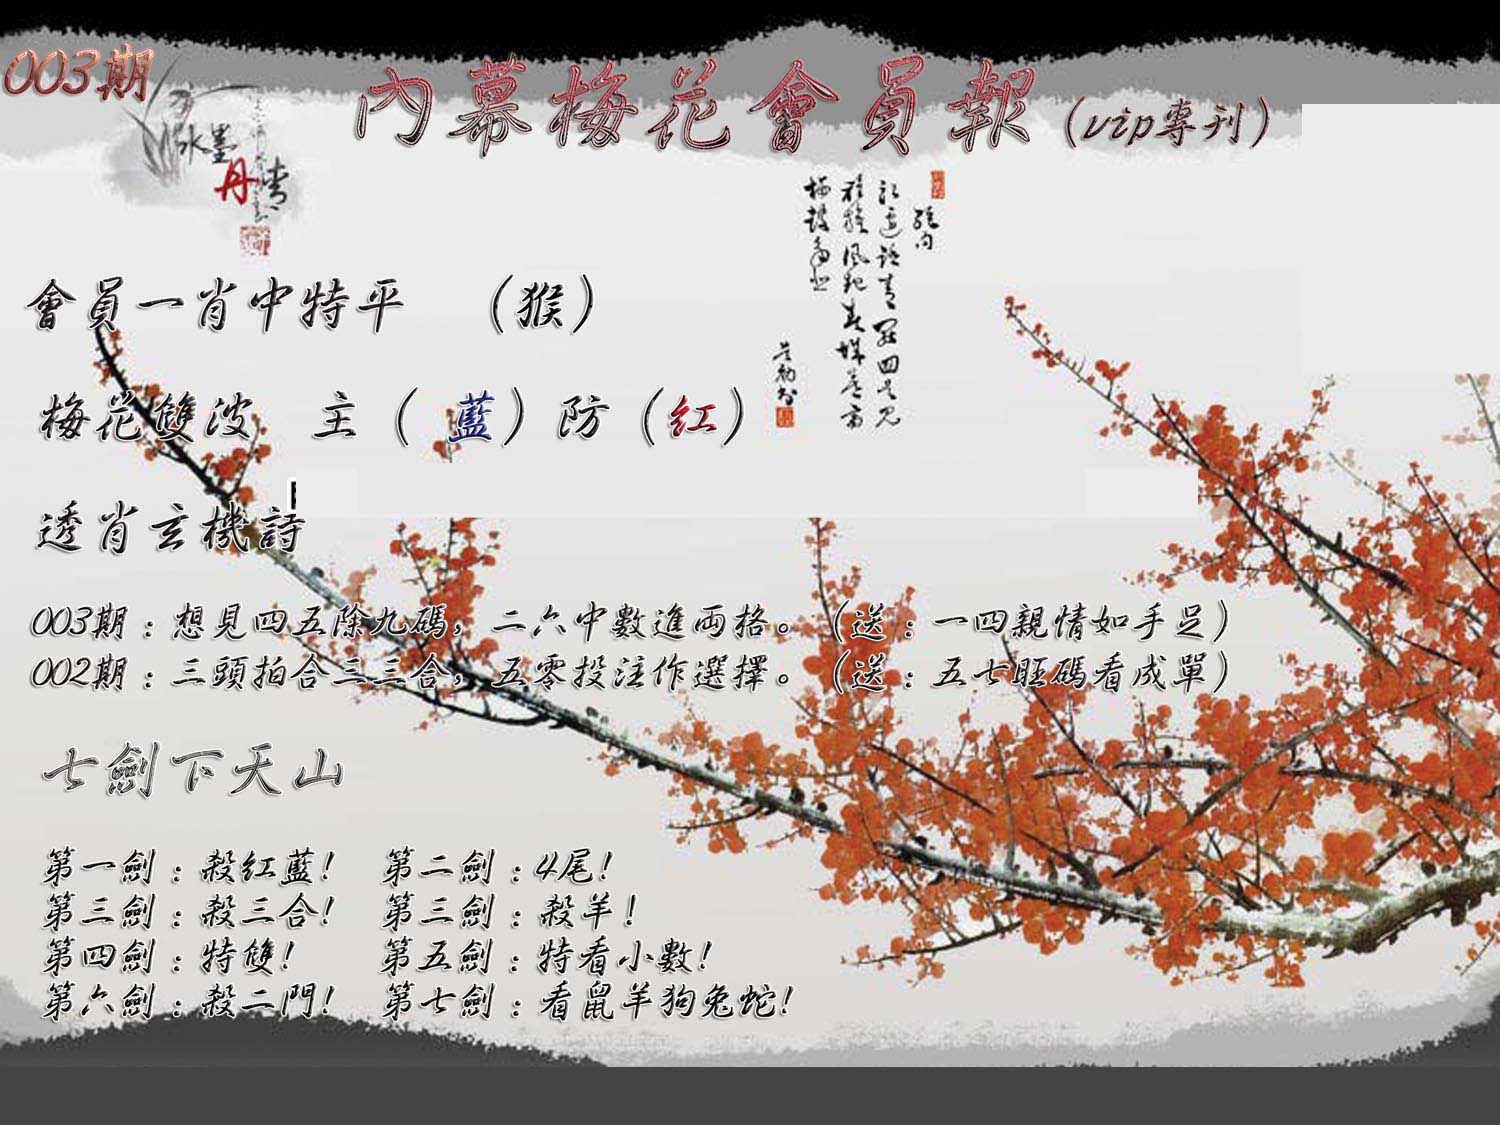 003期
內幕梅花會員報（vip專刊）
水墨
丹青
會員一肖中特平 （猴）
梅花雙波 主（藍）防（紅）
透肖玄機詩
003期：想見四五除九碼，二六中數進兩格。（送：一四親情如手足）
002期：三頭拍合三三合，五零投注作選擇。（送：五七旺碼看成單）
七劍下天山
第一劍：殺紅藍！ 第二劍：4尾！
第三劍：殺三合！ 第三劍：殺羊！
第四劍：特雙！ 第五劍：特看小數！
第六劍：殺二門！ 第七劍：看鼠羊狗兔蛇！